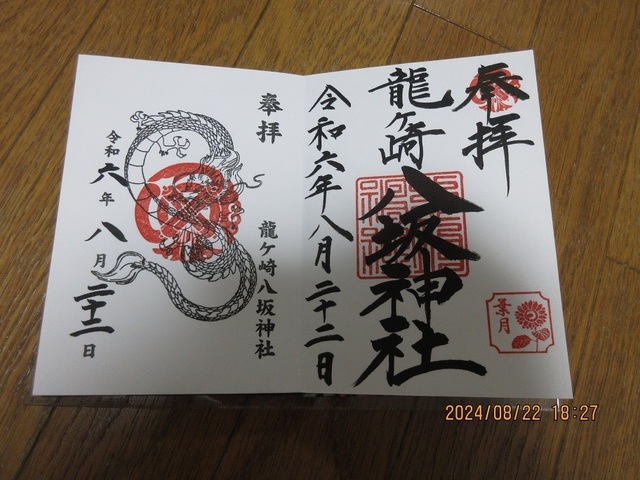 奉拝
龍ヶ崎
八坂神社
令和六年八月二十二日
葉月
奉拝
龍ケ崎八坂神社
令和六年八月二十二日
2024/08/22 18:27